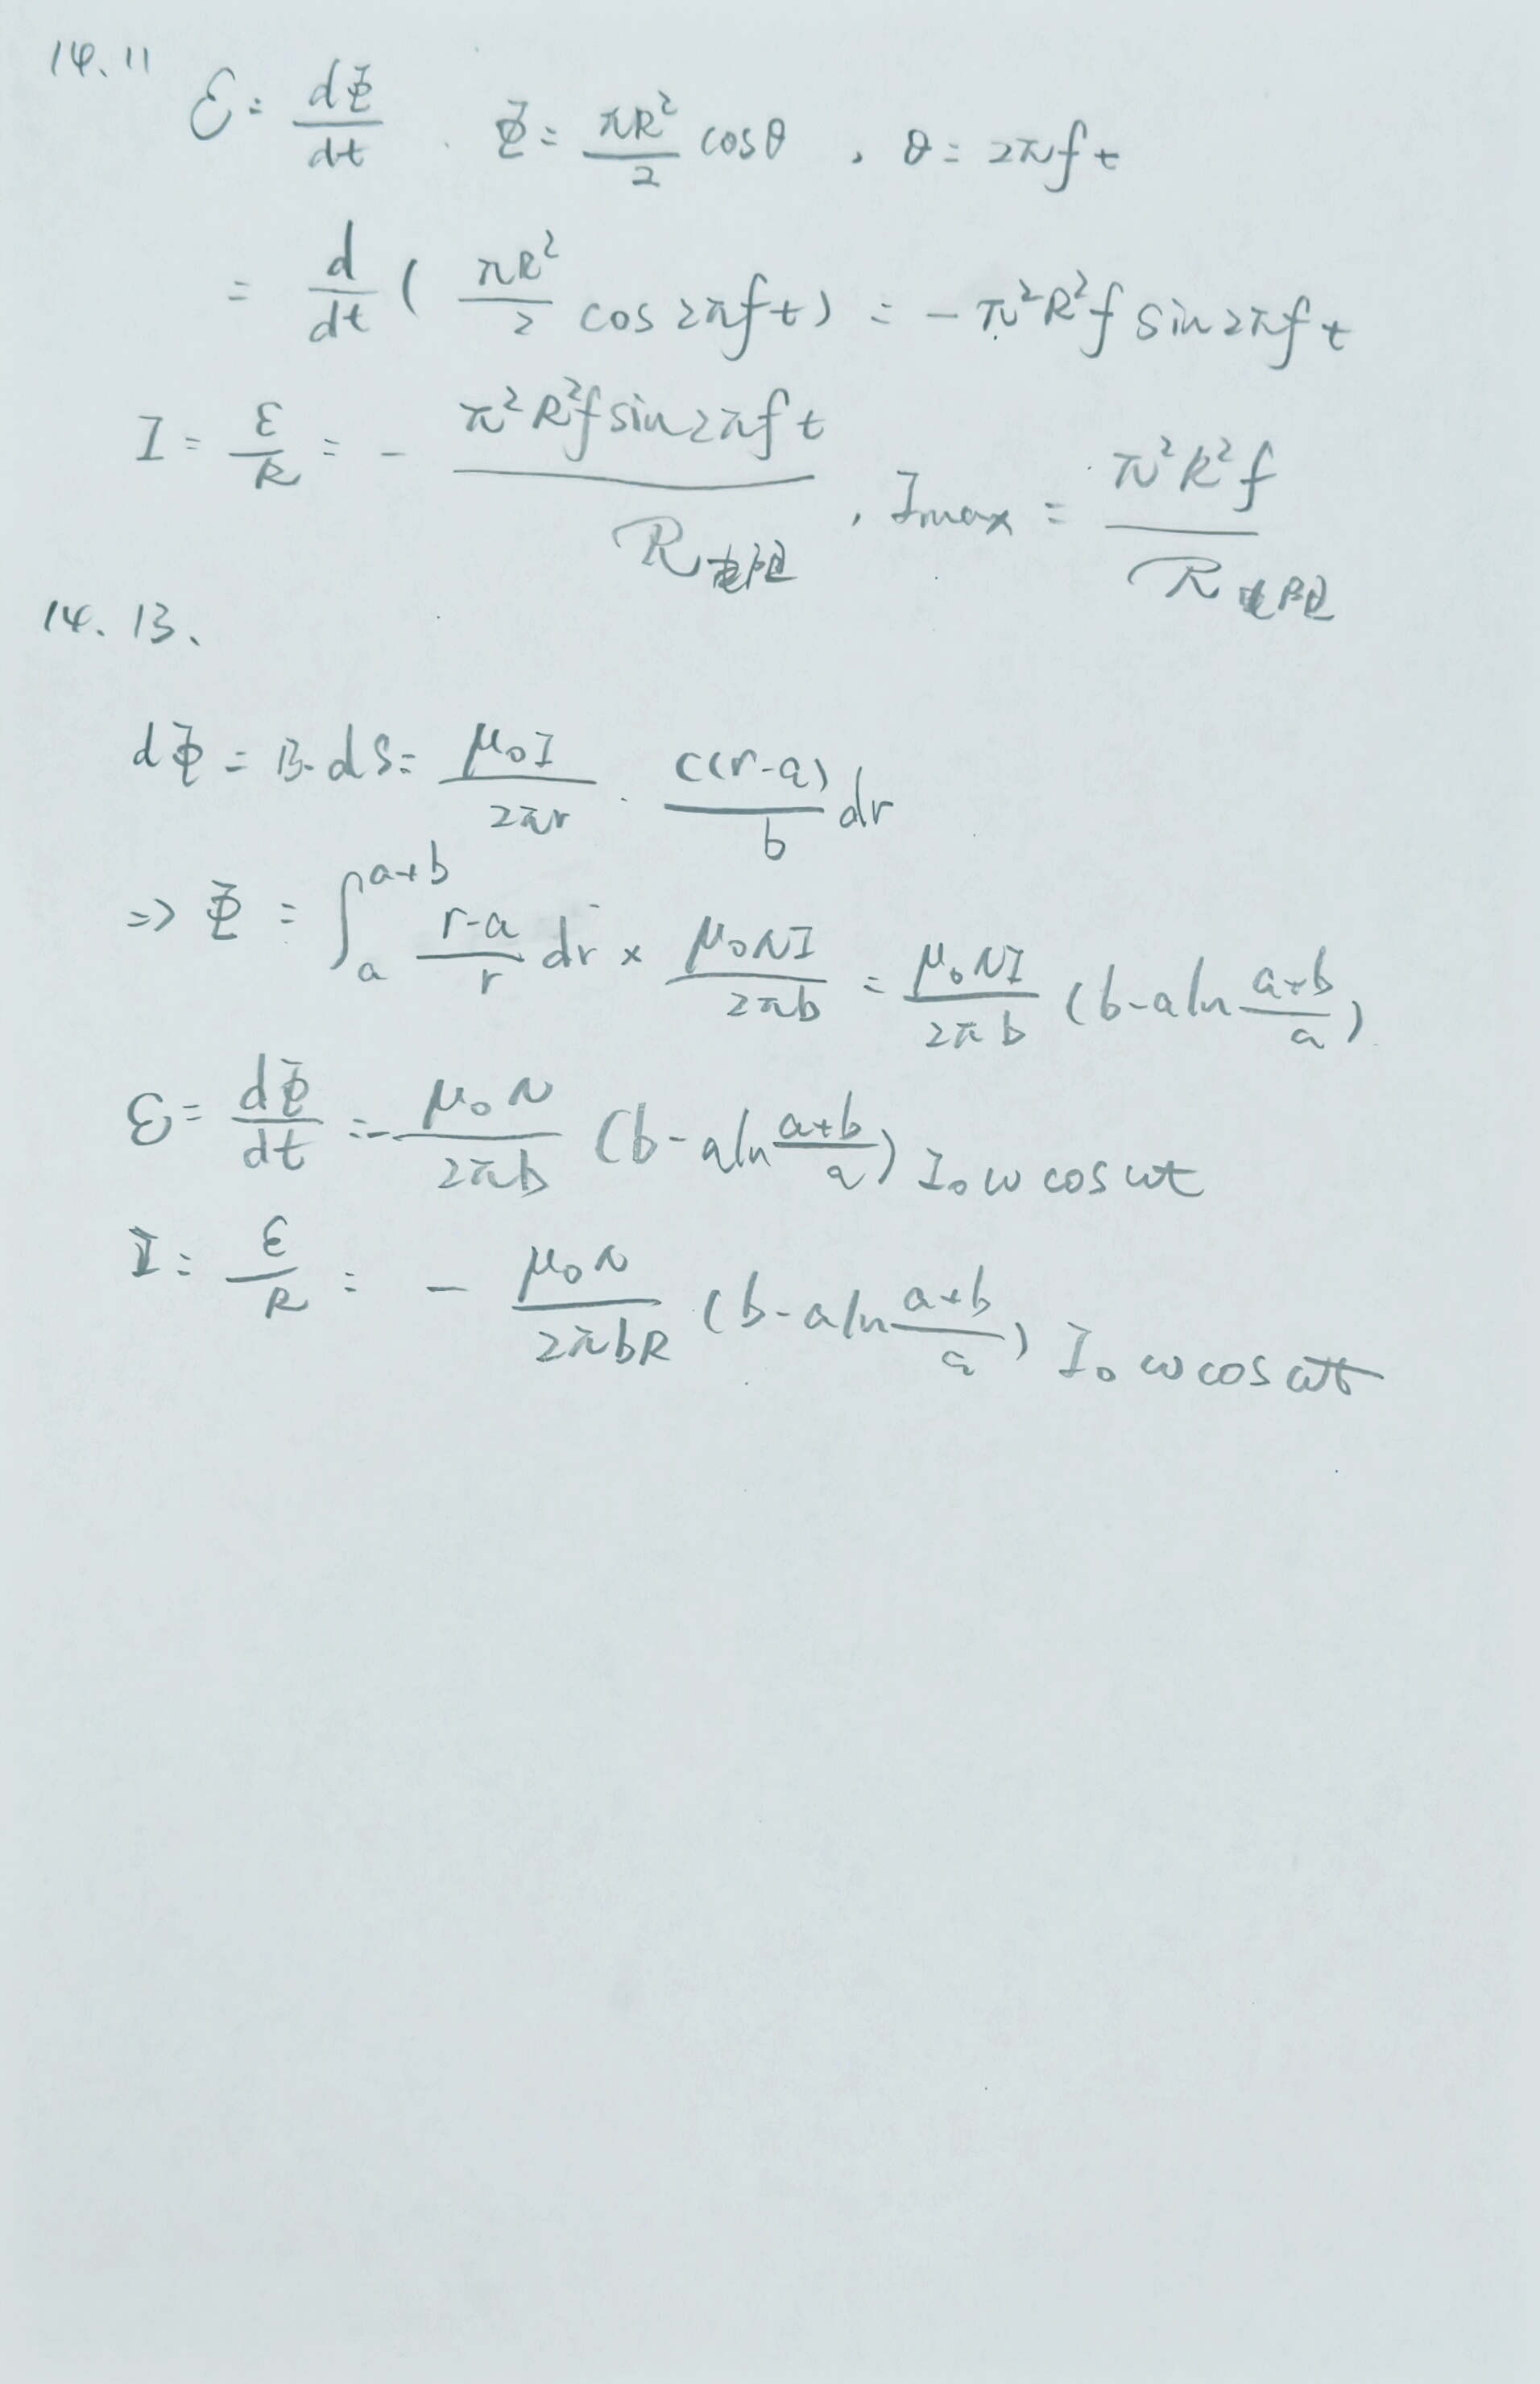 14.11
ε = dΦ/dt . Φ = πR²/2 cosθ , θ = 2πft
= d/dt ( πR²/2 cos2πft ) = -π²R²f sin2πft
I = ε/R = - π²R²f sin2πft / R电阻 , Imax = π²R²f / R电阻
14.13、
dΦ = B·dS = μ₀I/2πr · c(r-a)/b dr
=> Φ = ∫ₐᵃ⁺ᵇ (r-a)/r dr × μ₀NI/2πb = μ₀NI/2πb (b-a ln (a+b)/a)
ε = dΦ/dt = - μ₀N/2πb (b-a ln (a+b)/a) I₀ω cosωt
I = ε/R = - μ₀N/2πbR (b-a ln (a+b)/a) I₀ω cosωt